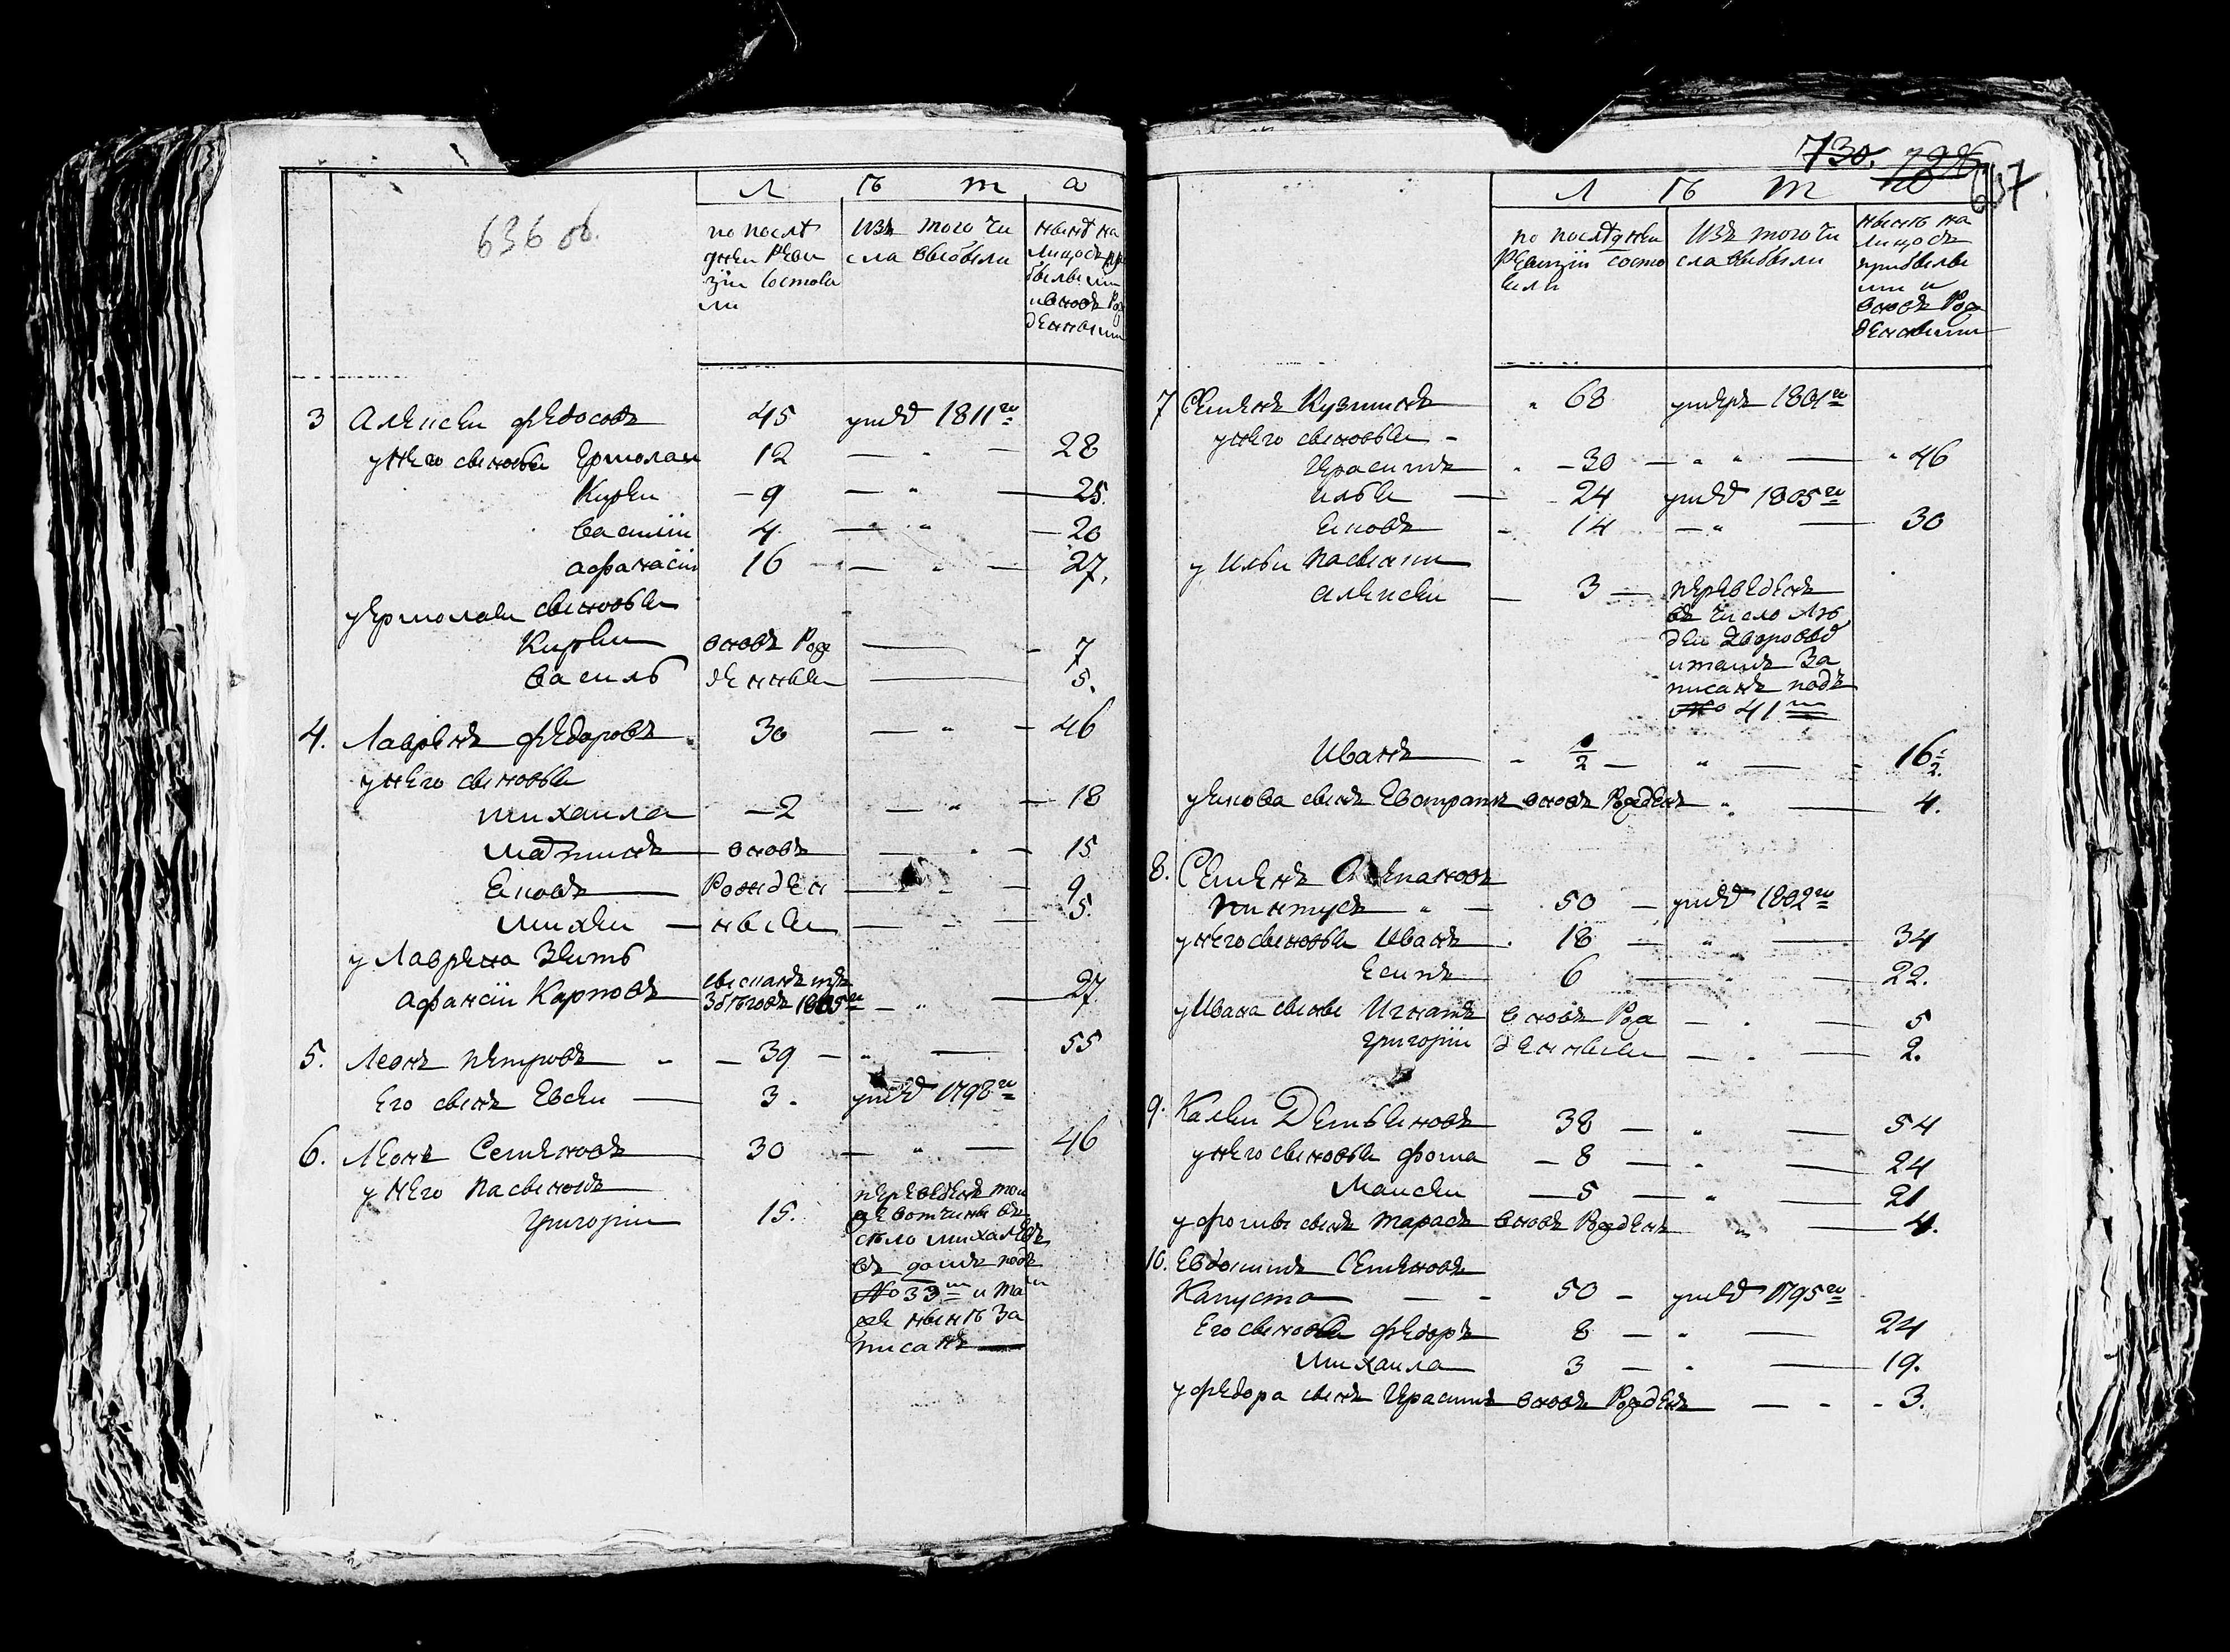 636 об.
Л ѣ т а
по послѣ дней реви зіи состоя ли | изъ того чи сла выбыли | нынѣ на лицо съ при былыми и вновь рож денными
3 Алексей Федосовъ 45 умеръ 1811го
у него сыновья Ермолай 12 — 28
Кирей — 9 — 25.
Василій 4 — 20
Афанасій 16 — 27.
у Ермолая сыновья
Кирей вновь рож — 7
Василь денныя — 5.
4. Лавренъ Федоровъ 30 — 46
у него сыновья
Михайла — 2 — 18
вновь — 15
Яковъ рожден — 9
Михей ныя — 5.
у Лаврена зять
Афансій Карповъ 1805го — 27.
5. Леонъ Петровъ — 39 — 55
Его сынъ Евсей 3. умеръ 1798го
6. Леонъ Семеновъ 30 — 46
у него пасынокъ
Григорій 15. переведенъ той
же вотчины въ
село
въ домъ подъ
№ 33м и та
же нынѣ за
писанъ
730. 637
Л ѣ т а
по послѣдней ревизіи состо яли | изъ того чи сла выбыли | нынѣ на лицо съ прибылы ми и вновь рож денными
7 Семенъ Кузминъ 68 умеръ 1801го
у него сыновья
Герасимъ — 30 — 46
Илья — 24 умеръ 1805го
Яковъ 14 — 30
у Ильи пасынки
Алексей — 3 — переведенъ
въ число лю
дей дворовы
и тамъ за
писанъ подъ
№ 41м
Иванъ ½ — 16½.
у Якова сынъ Евстратъ вновь рожденъ — 4.
8. Семенъ Степановъ
50 — умеръ 1802го
у него сыновья Иванъ 18 — 34
Есипъ 6 — 22.
у Ивана сыны Игнатъ вновь рож — 5
Григорій денныя — 2.
9. Калей Демьяновъ 38 — 54
у него сыновья Фома — 8 — 24
Маисей — 5 — 21
у Фомы сынъ Тарасъ вновь рожденъ — 4.
10. Евдокимъ Семеновъ
Капуста — 50 — умеръ 1795го
Его сыновья Федоръ 8 — 24
Михайла 3 — 19.
у Федора сынъ Герасимъ вновь рожденъ — 3.